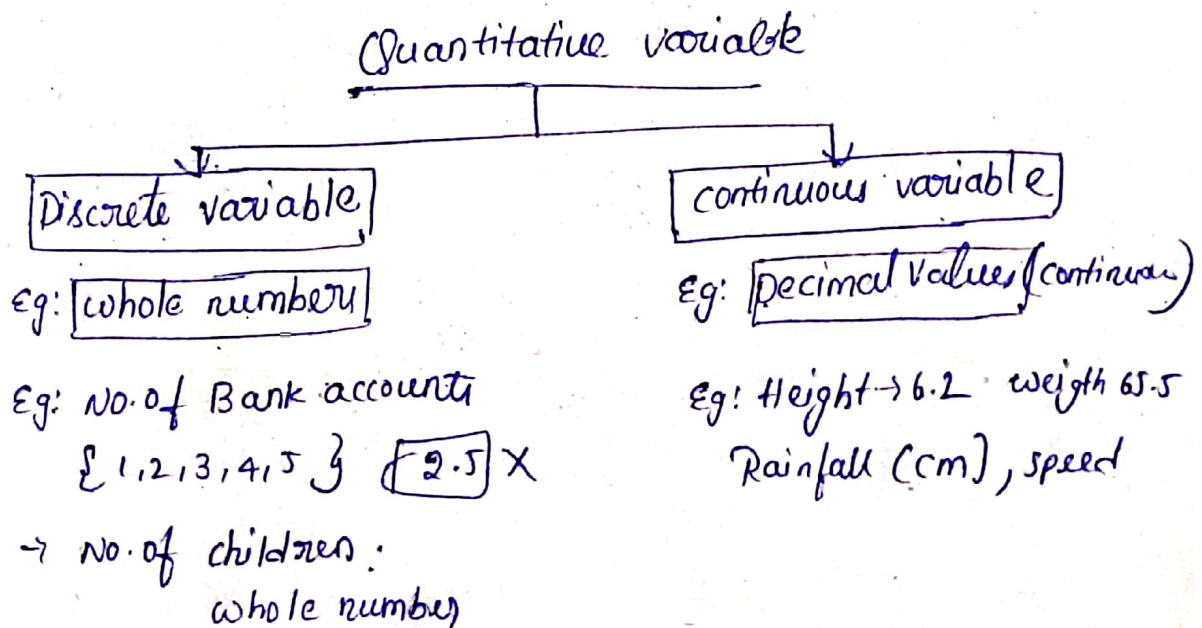 Quantitative variable
Discrete variable
Eg: whole numbers
Eg: No. of Bank accounts
{ 1, 2, 3, 4, 5 } 2.5 X
→ No. of children:
whole number
continuous variable
Eg: Decimal values (continuous)
Eg: Height → 6.2 weigth 65.5
Rainfall (cm), speed